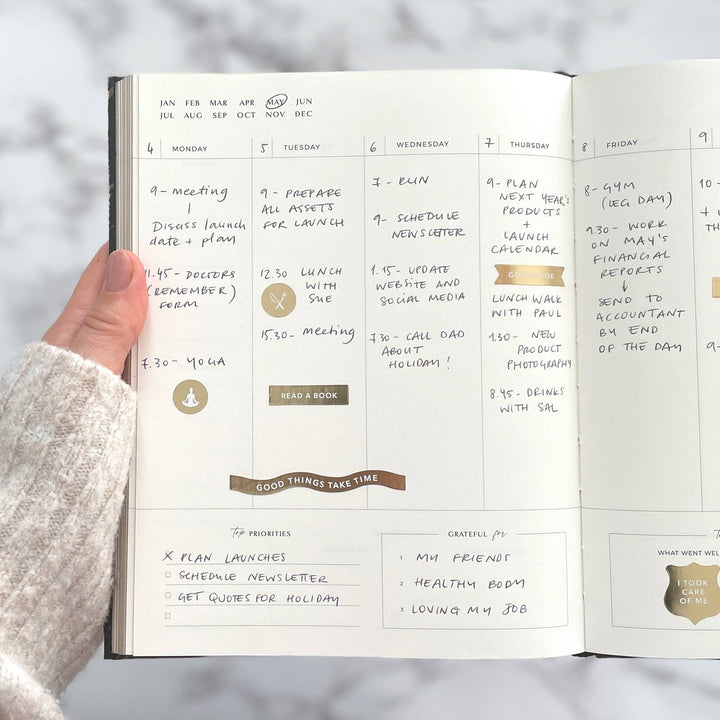 JAN FEB MAR APR MAY JUN
JUL AUG SEP OCT NOV DEC
4 MONDAY
9 - meeting
Disuss launch
date + plan
11.45 - DOCTORS
(REMEMBER)
FORM
7.30 - YOGA
5 TUESDAY
9 - PREPARE
ALL ASSETS
FOR LAUNCH
12.30 LUNCH
WITH
SUE
15.30 - meeting
READ A BOOK
6 WEDNESDAY
7 - RUN
9 - SCHEDULE
NEWSLETTER
1.15 - UPDATE
WEBSITE AND
SOCIAL MEDIA
7.30 - CALL DAD
ABOUT
HOLIDAY!
GOOD THINGS TAKE TIME
7 THURSDAY
9 - PLAN
NEXT YEAR'S
PRODUCTS
+
LAUNCH
CALENDAR
LUNCH WALK
WITH PAUL
1.30 - NEW
PRODUCT
PHOTOGRAPHY
8.45 - DRINKS
WITH SAL
8 FRIDAY
8 - GYM
(LEG DAY)
9.30 - WORK
ON MAY'S
FINANCIAL
REPORTS
SEND TO
ACCOUNTANT
BY END
OF THE DAY
9
10 -
+
TH
9 -
Top PRIORITIES
PLAN LAUNCHES
SCHEDULE NEWSLETTER
GET QUOTES FOR HOLIDAY
GRATEFUL for
1 MY FRIENDS
2 HEALTHY BODY
3 LOVING MY JOB
WHAT WENT WEL
I TOOK
CARE
OF ME